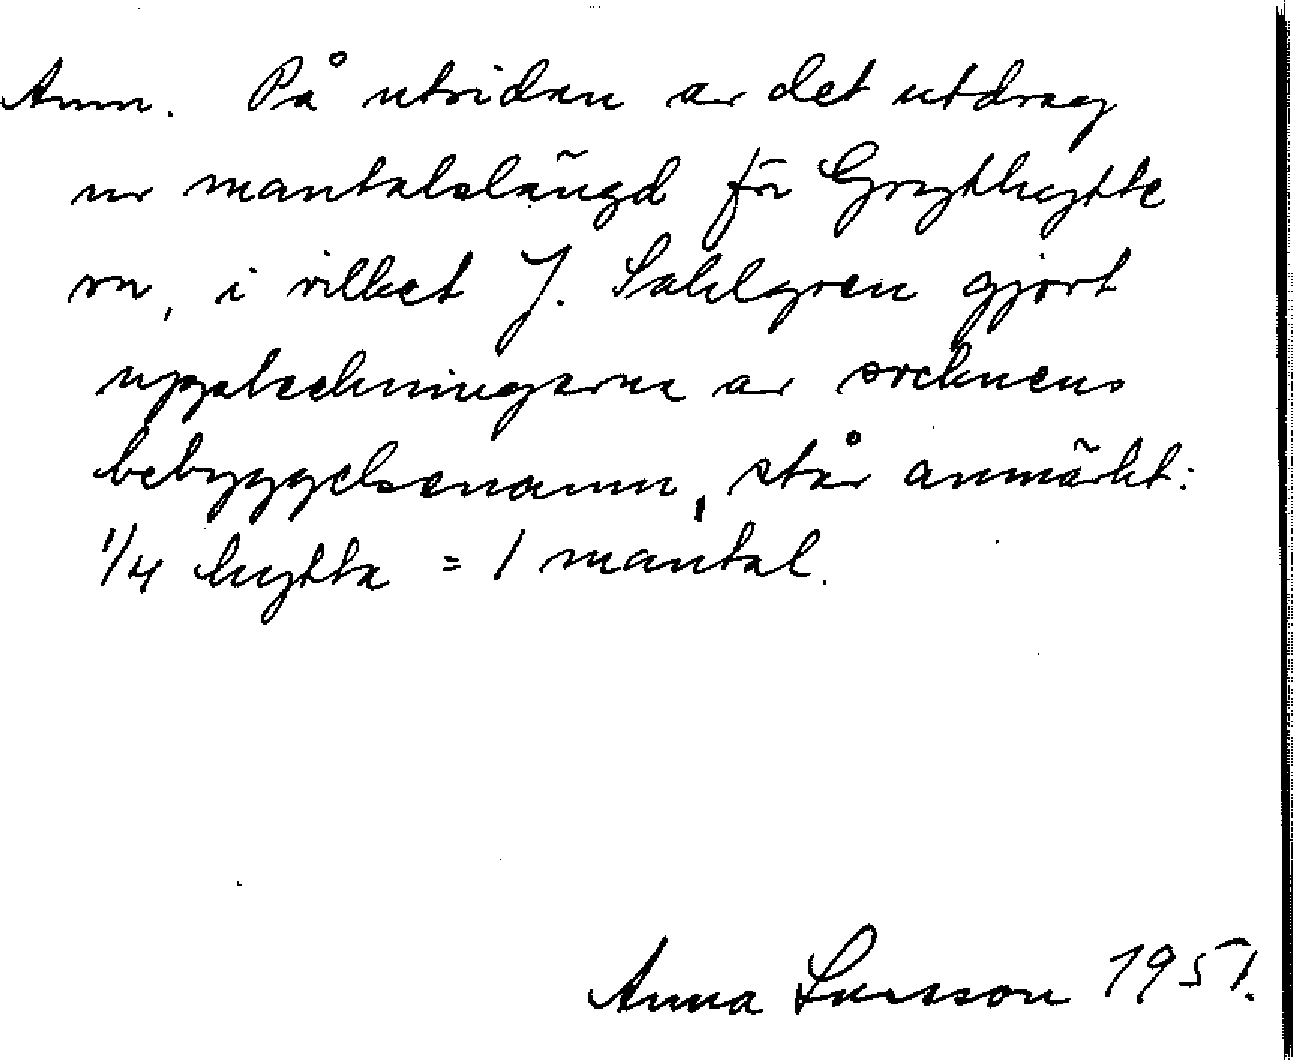 Anm. På utsidan av det utdrag
ur mantalslängd för Grythytte
sn, i vilket J. Sahlgren gjort
uppteckningarna av socknens
bebyggelsenamn, står anmärkt:
1/4 hytta = 1 mantal.
Anna Larsson 1951.